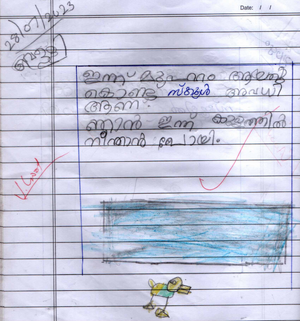 Date: / /
28/07/2023
ഇന്ന് മുഹറം ആയത്
കൊണ്ട് സ്കൂൾ അവധി
ആണ്.
ഞാൻ ഇന്ന് കുളത്തിൽ
നീന്താൻ പോയി.